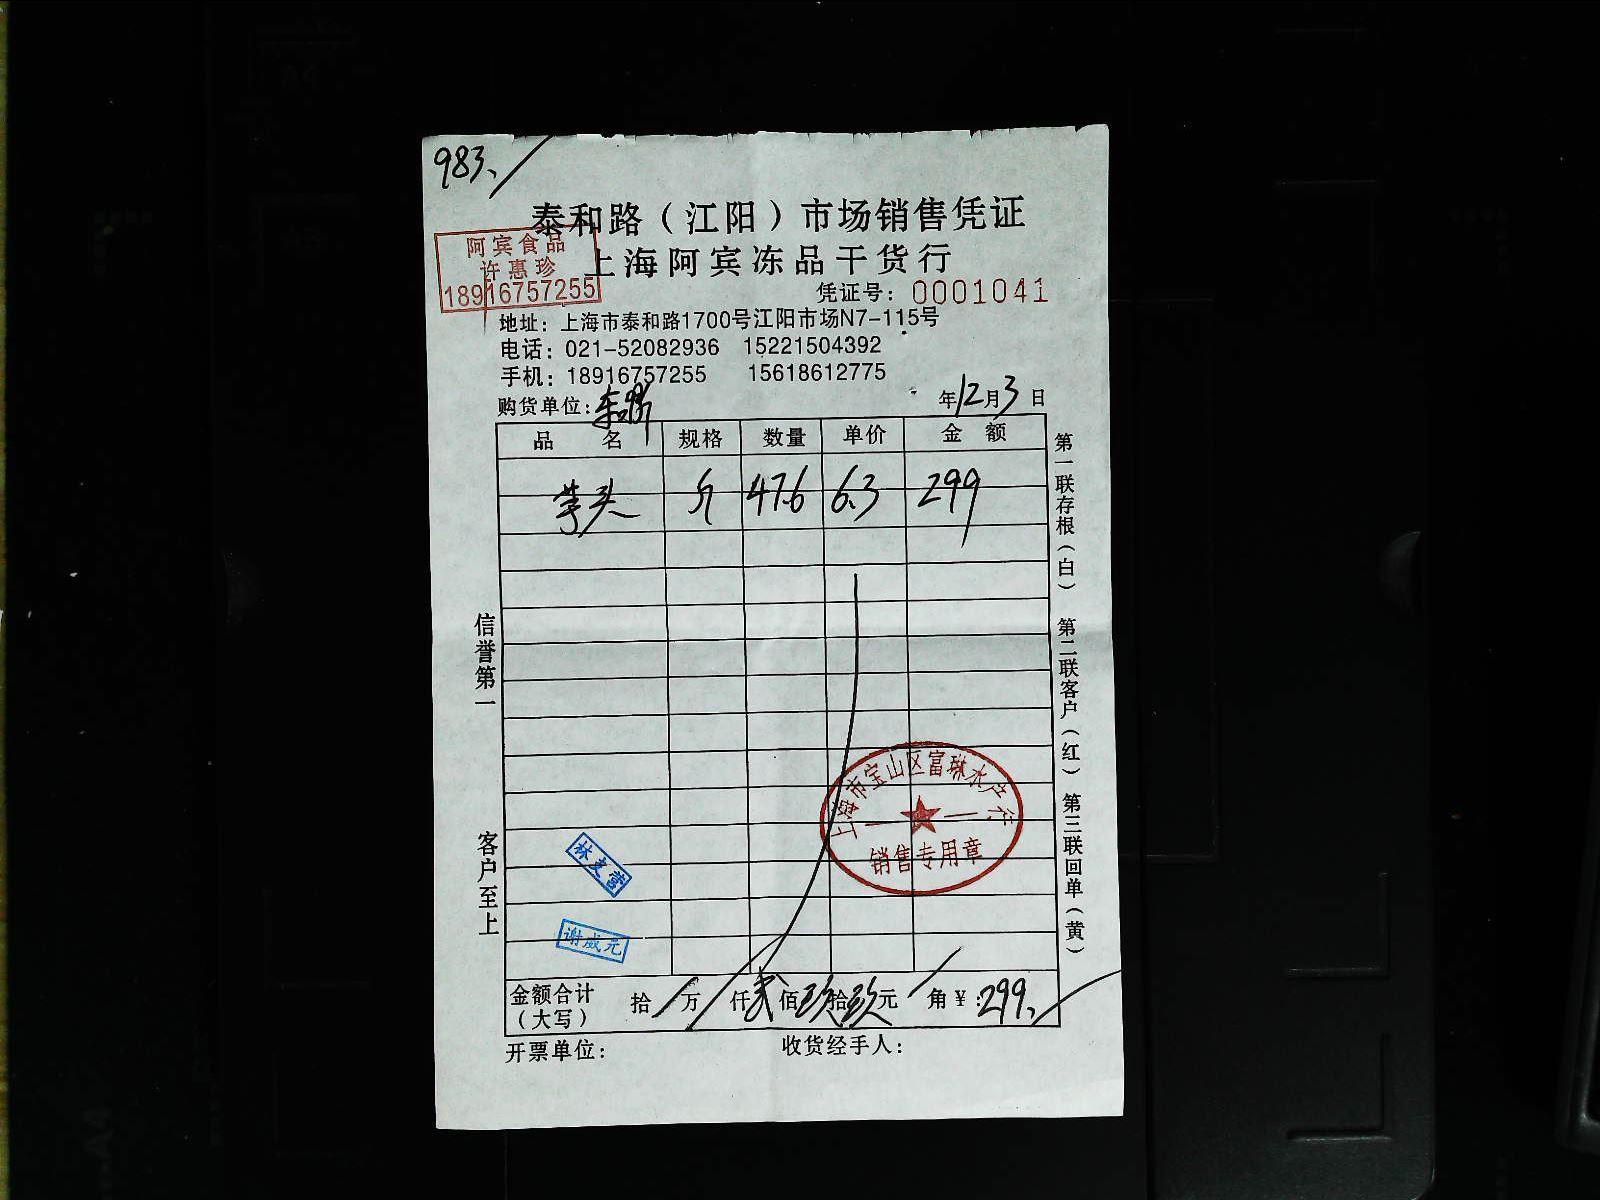 983、
泰和路（江阳）市场销售凭证
上海阿宾冻品干货行
阿宾食品
许惠珍
18916757255
凭证号：0001041
地址：上海市泰和路1700号江阳市场N7-115号
电话：021-52082936 15221504392
手机：18916757255 15618612775
购货单位：
年12月3日
品名 规格 数量 单价 金额
芋头 斤 47.6 6.3 299
第一联存根（白） 第二联客户（红） 第三联回单（黄）
信誉第一 客户至上
上海市宝山区富琳水产行
销售专用章
林友营
谢威元
金额合计（大写） 拾 万 仟贰佰玖拾玖元 角¥：299、
开票单位： 收货经手人：